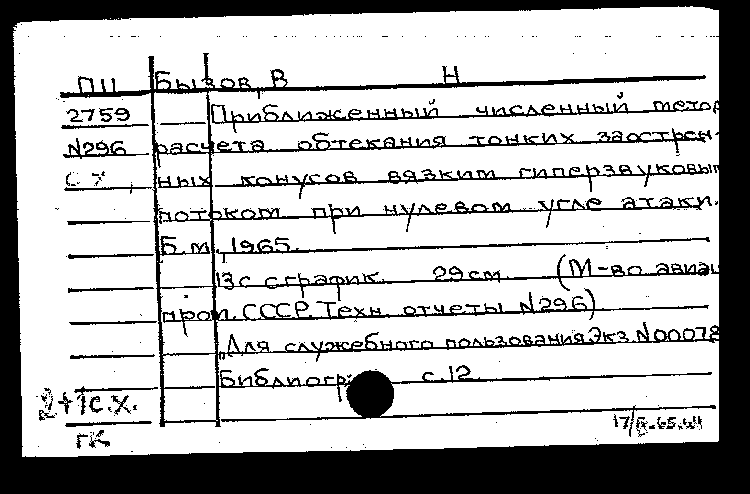 ПЦ Бызов, В Н
2759 Приближенный численный метод
N296 расчета обтекания тонких заострен-
с х, ных конусов вязким гиперзвуковым
потоком при нулевом угле атаки.
Б.м., 1965.
13с с график. 29см. (М-во авиац
пром. СССР. Техн. отчеты N296)
"Для служебного пользования. Экз. N00078
Библиогр: с.12.
2+1с.х.
ГК